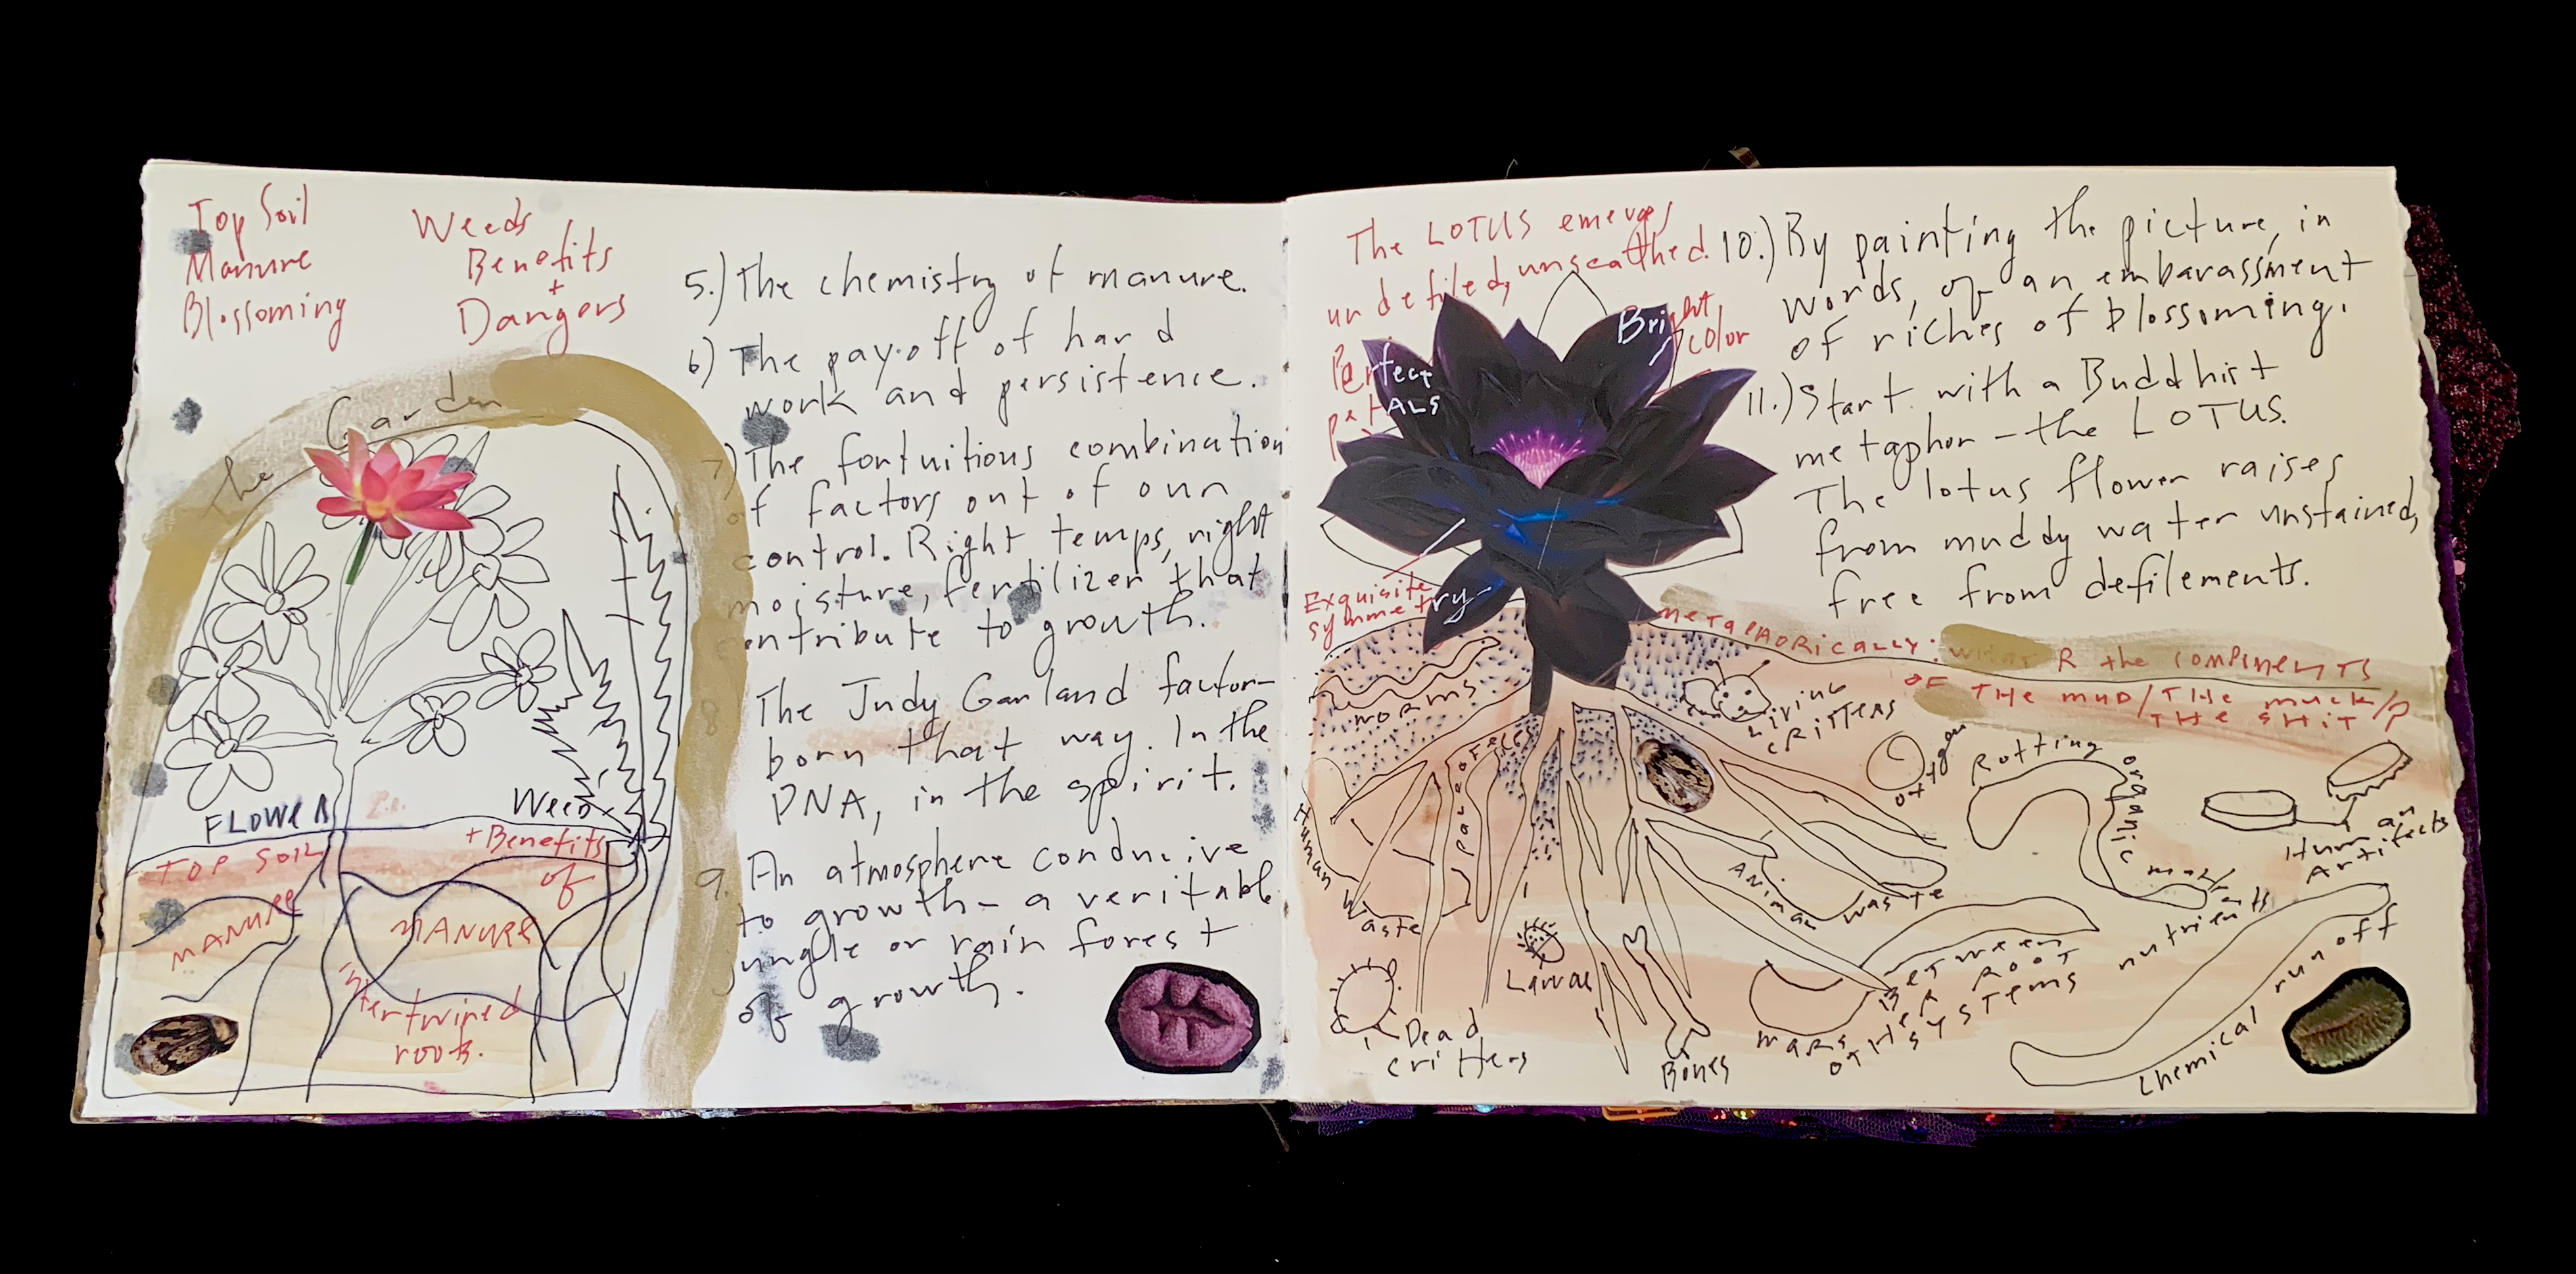 Top Soil
Manure
Blossoming
Weeds
Benefits
+
Dangers
The Garden
FLOWER
Weed
TOP SOIL
+ Benefits
of
MANURE
MANURE
intertwined
roots.
5.) The chemistry of manure.
6.) The payoff of hard
work and persistence.
7.) The fortuitious combination
of factors out of our
control. Right temps, right
moisture, fertilizer that
contribute to growth.
8 The Judy Garland factor-
born that way. In the
DNA, in the spirit.
9. An atmosphere conducive
to growth - a veritable
jungle or rain forest
of growth.
The LOTUS emerges
undefiled, unscathed.
Perfect
petALS
Bright
color
Exquisite
symmetry
10.) By painting the picture, in
words, of an embarassment
of riches of blossoming.
11.) Start with a Buddhist
metaphor - the LOTUS.
The lotus flower raises
from muddy water unstained,
free from defilements.
METAPHORICALLY: WHAT R the COMPONENTS
OF THE MUD/THE MUCK/
THE SHIT
WORMS
Living
CRITTERS
oxygen
Rotting organic matter
Human
Artifacts
Human Waste
Faeces
Animal waste
Larvae
Dead
critters
Bones
BETWEEN
OTHER ROOT
SYSTEMS
nutrients
Chemical run off